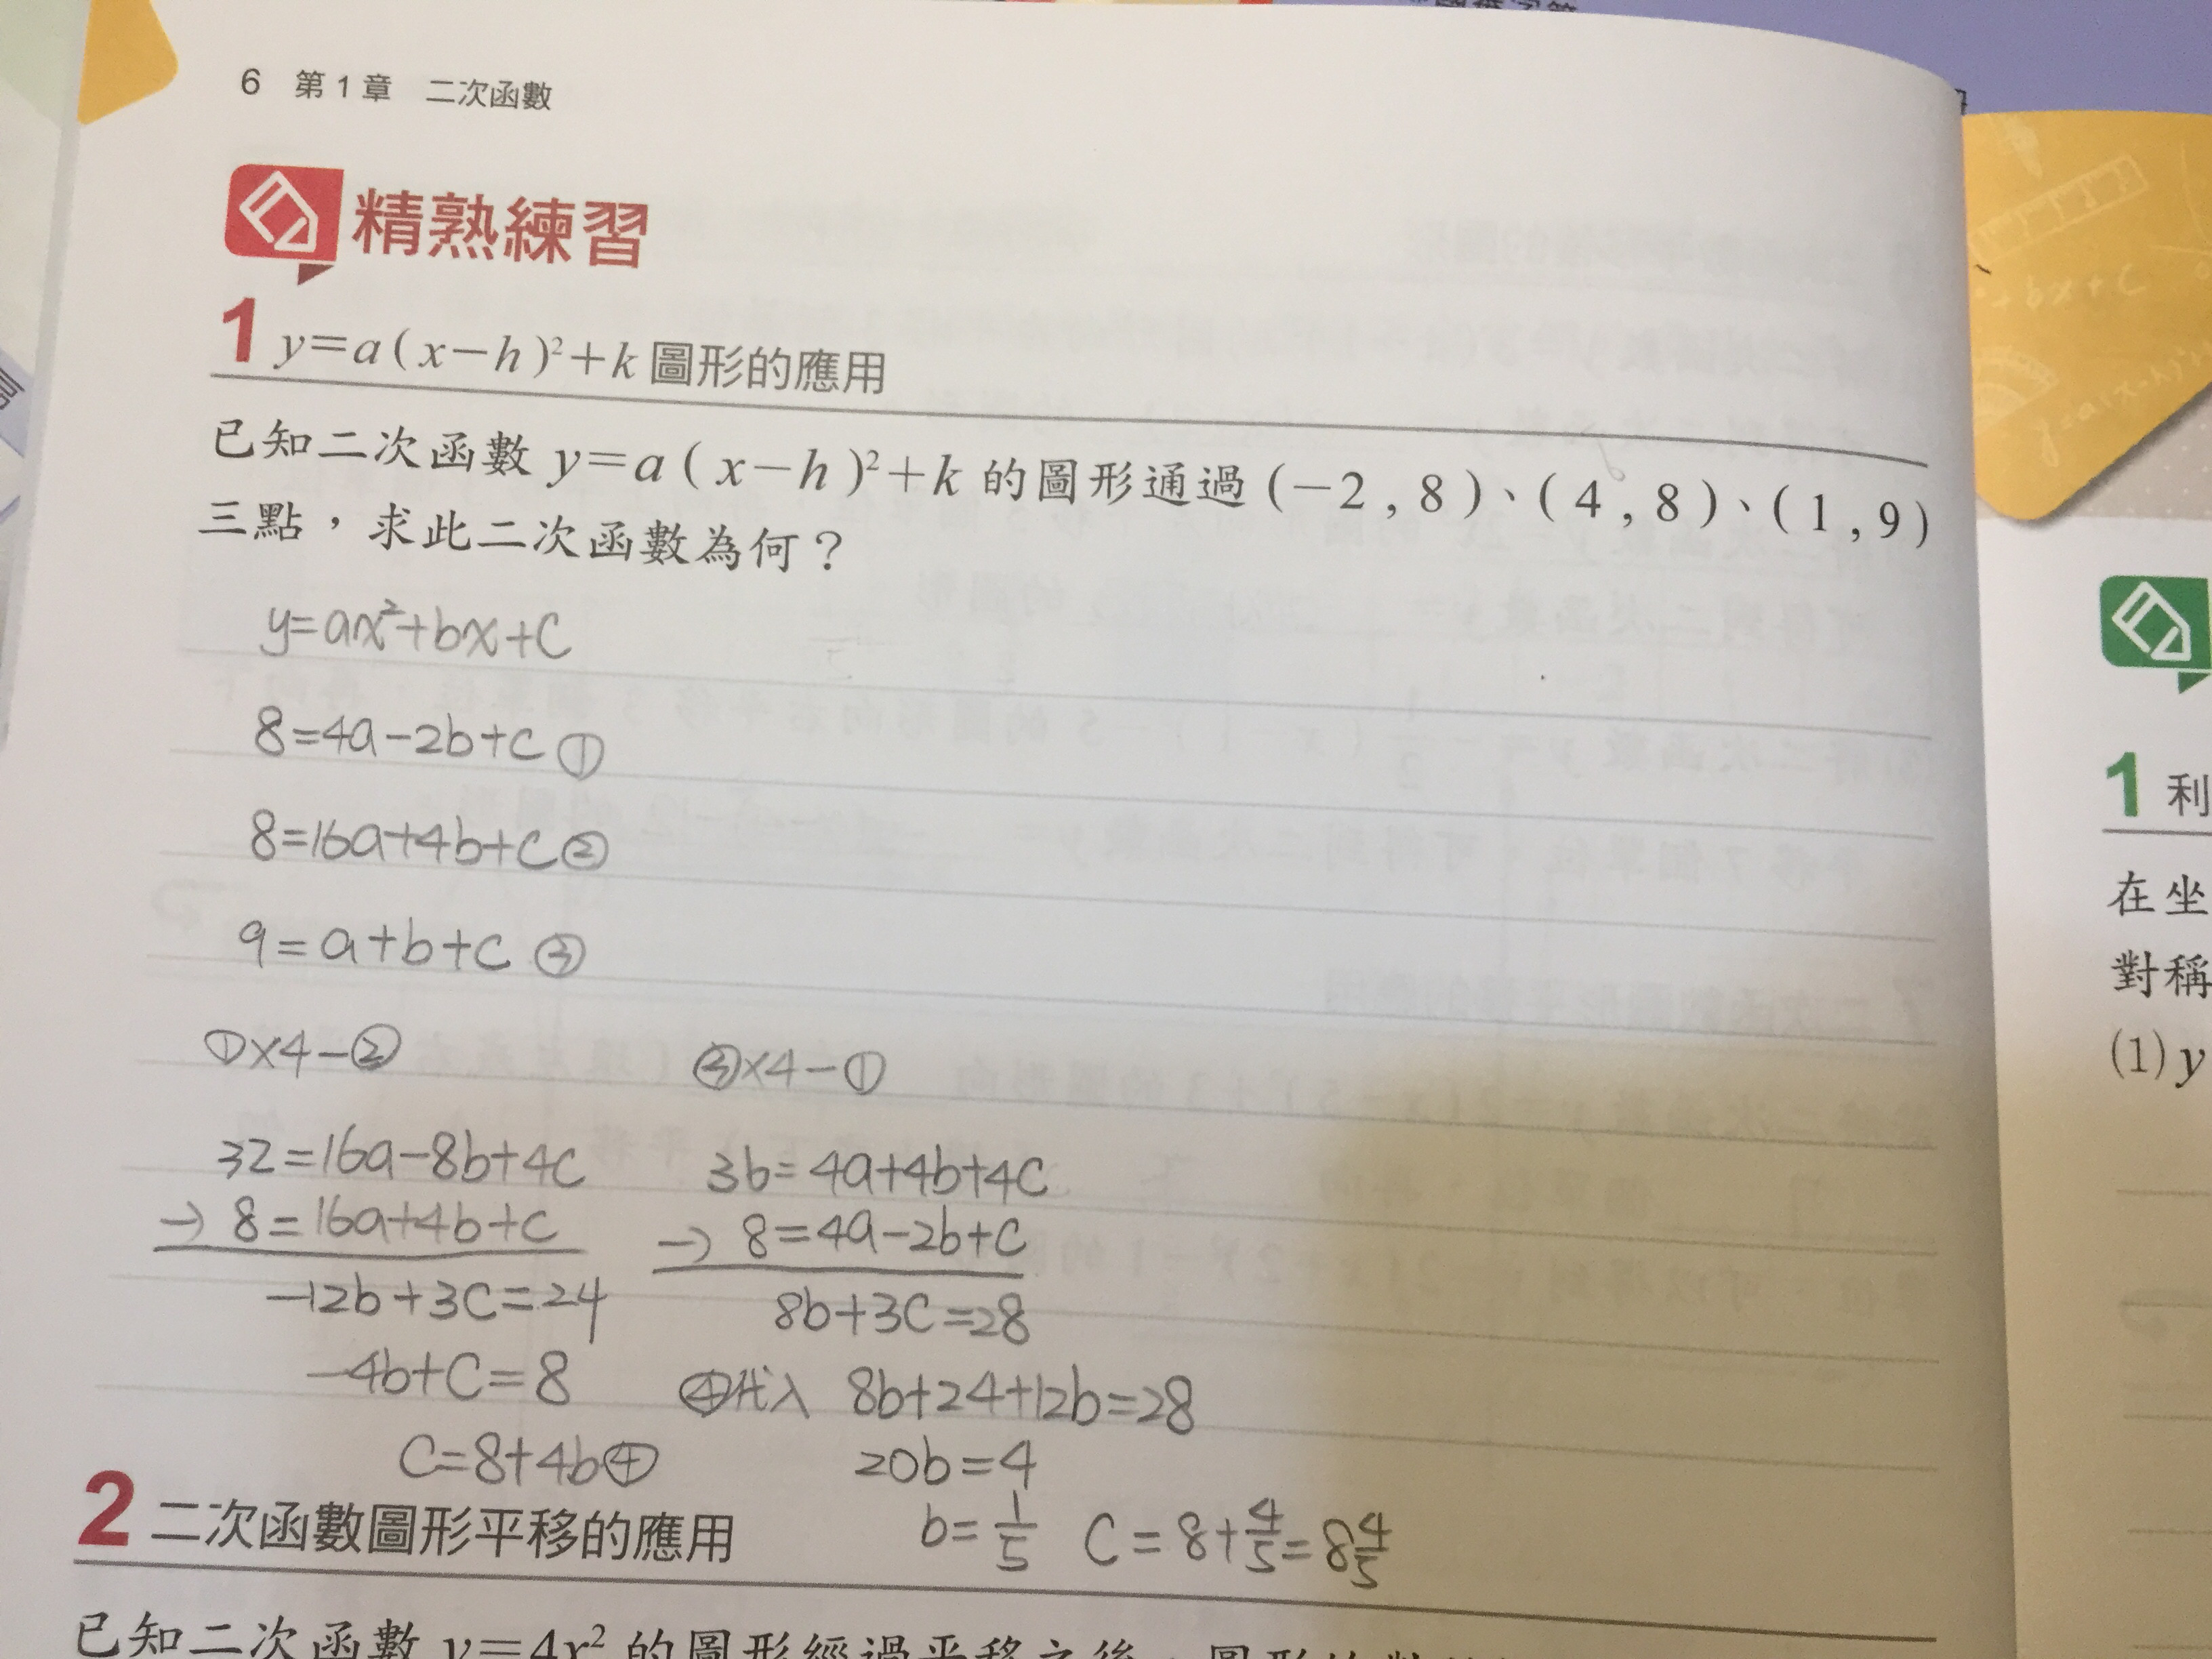 6 第1章 二次函數
精熟練習
1 y=a(x-h)²+k 圖形的應用
已知二次函數 y=a(x-h)²+k 的圖形通過(-2,8)、(4,8)、(1,9)
三點，求此二次函數為何？
y=ax²+bx+c
8=4a-2b+c ①
8=16a+4b+c ②
9=a+b+c ③
①×4-② ③×4-①
32=16a-8b+4c 36=4a+4b+4c
-) 8=16a+4b+c -) 8=4a-2b+c
-12b+3c=24 8b+3c=28
-4b+c=8 ④代入 8b+24+12b=28
c=8+4b④ 20b=4
b=1/5 c=8+4/5=8 4/5
2 二次函數圖形平移的應用
已知二次函數 y=4x² 的圖形經過平移之後，圖形的對
1 利
在坐
對稱
(1) y